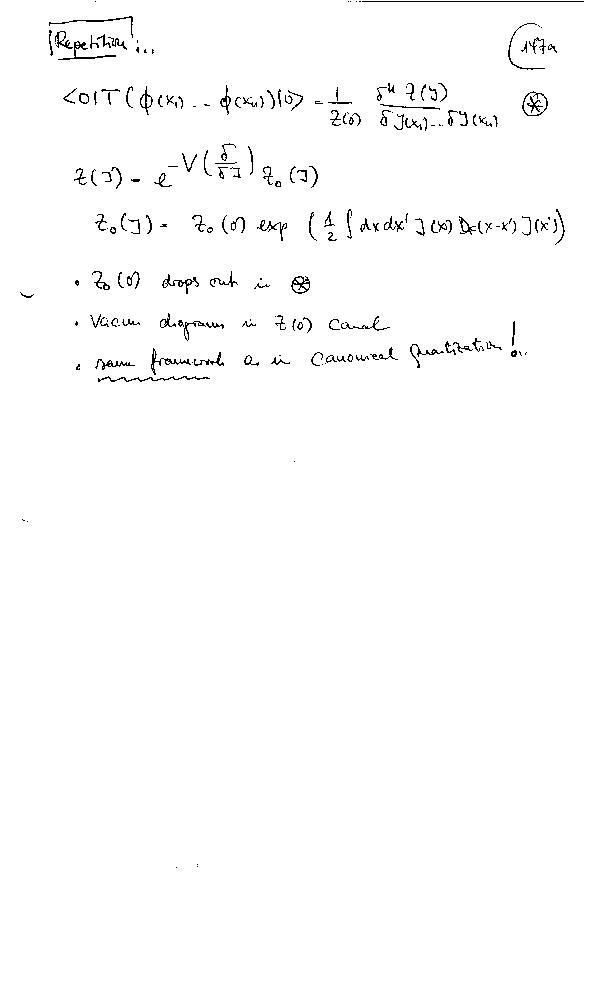 Repetition:...
147a
<0|T(ϕ(x₁)...ϕ(xₙ))|0> = 1/Z(0) δⁿ Z(J)/δJ(x₁)...δJ(xₙ) ⊛
Z(J) = e^{-V(δ/δJ)} Z₀(J)
Z₀(J) = Z₀(0) exp (1/2 ∫ dx dx' J(x) D_F(x-x') J(x'))
• Z₀(0) drops out in ⊛
• Vacuum diagrams in Z(0) cancel
• same framework as in canonical quantization!..